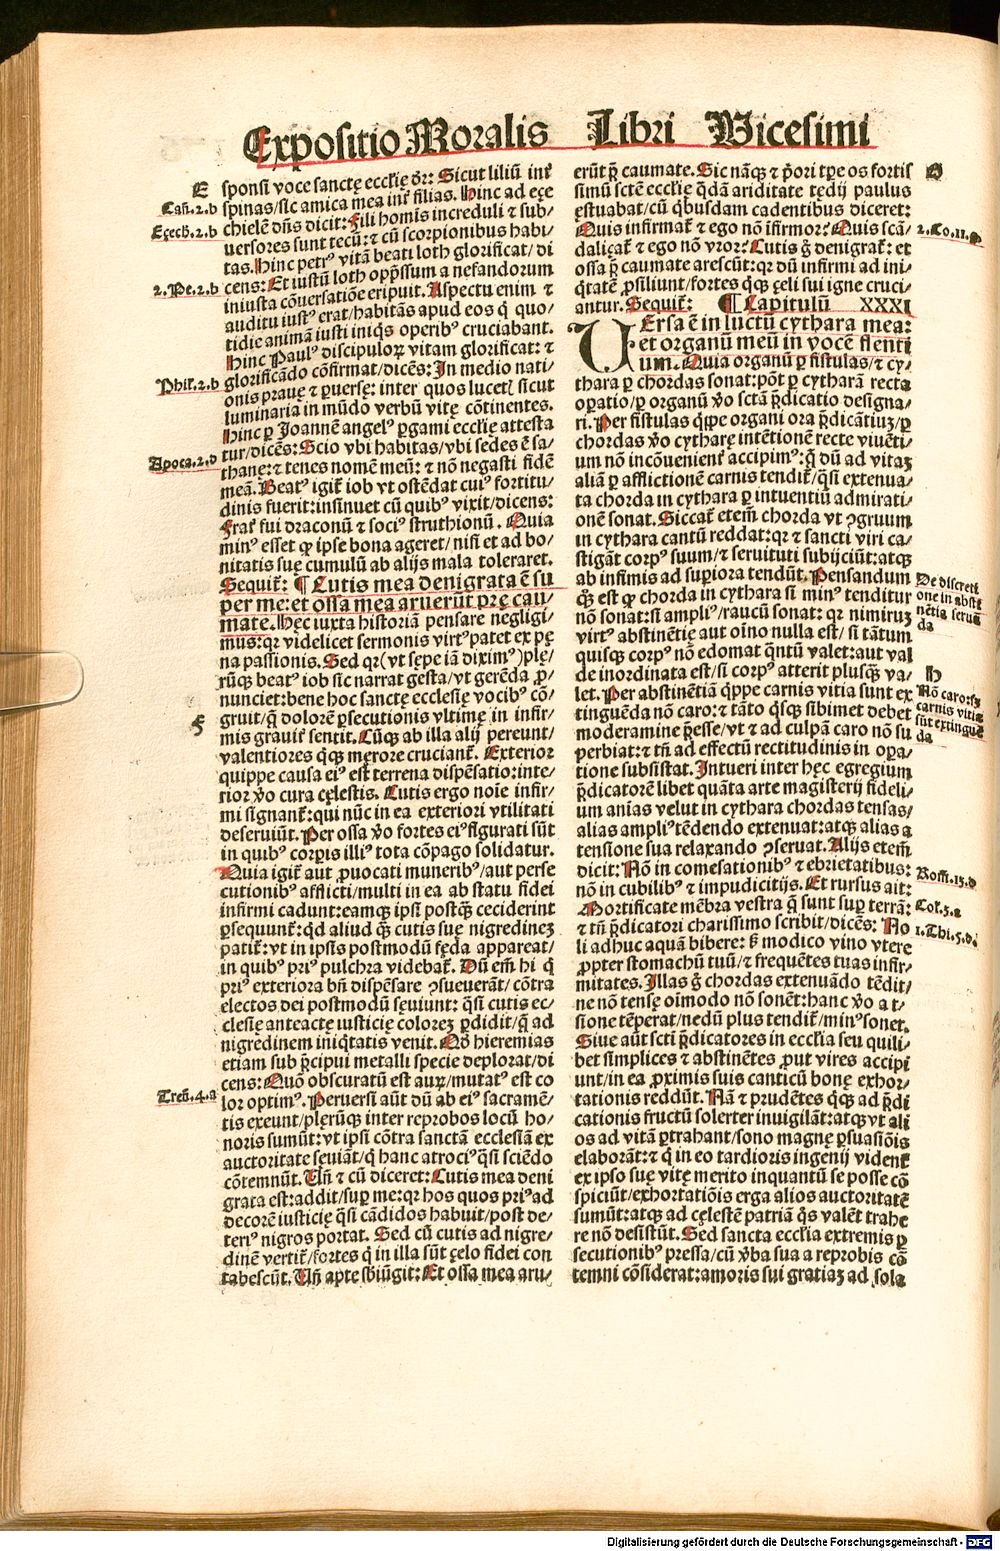 Expositio Moralis Libri Vicesimi
E
Cań.2.b
Ezech.2.b
2.Pe.2.b
Phil.2.b
Apoca.2.d
F
Treń.4.a
sponsi voce sanctę eccl̄ię dr̄: Sicut liliū int̄
spinas/sic amica mea int̄ filias. Hinc ad eze
chielē dn̄s dicit: Fili homis increduli ⁊ sub/
uersores sunt tecū: ⁊ cū scorpionibus habi/
tas. Hinc petrꝰ vitā beati loth glorificat/di
cens: Et iustū loth opp̄ssum a nefandorum
iniusta cōuersatiōe eripuit. Aspectu enim ⁊
auditu iustꝰ erat/habitās apud eos q̇ quo/
tidie animā iusti iniqs operibꝰ cruciabant.
Hinc Paulꝰ discipuloꝝ vitam glorificat: ⁊
glorificādo cōfirmat/dicēs: In medio nati/
onis prauę ⁊ ꝑuersę: inter quos lucetꝭ sicut
luminaria in mūdo verbū vitę cōtinentes.
Hinc ꝑ Joannē angelꝰ ꝑgami eccl̄ię attesta
tur/dicēs: Scio vbi habitas/vbi sedes ē sa/
thanę: ⁊ tenes nomē meū: ⁊ nō negasti fidē
meā. Beatꝰ igit̄ iob vt ostēdat cuiꝰ fortitu/
dinis fuerit: insinuet cū quibꝰ vixit/dicens:
Frat̄ fui draconū ⁊ sociꝰ struthionū. Quia
minꝰ esset ꝙ ipse bona ageret/nisi et ad bo/
nitatis suę cumulū ab alijs mala toleraret.
Sequit̄: ¶ Cutis mea denigrata ē su
per me: et ossa mea aruerūt prę cau/
mate. Hęc iuxta historiā pensare negligi/
mus: qꝛ videlicet sermonis virtꝰ patet ex pę
na passionis. Sed qꝛ (vt sępe iā diximꝰ) plę/
rūqꝫ beatꝰ iob sic narrat gesta/vt gerēda ꝓ/
nunciet: bene hoc sanctę ecclesię vocibꝰ cō/
gruit/q̄ dolorē ꝑsecutionis vltimę in infir/
mis grauiꝰ sentit. Cūqꝫ ab illa alij pereunt/
valentiores q̇qꝫ męrore cruciant̄. Exterior
quippe causa eiꝰ est terrena dispēsatio: inte/
rior v̇o cura cęlestis. Cutis ergo noīe infir/
mi signant̄: qui nūc in ea exteriori vtilitati
deseruiūt. Per ossa v̇o fortes eiꝰ figurati sūt
in quibꝰ corꝑis illiꝰ tota cōpago solidatur.
Quia igit̄ aut ꝓuocati muneribꝰ/aut perse
cutionibꝰ afflicti/multi in ea ab statu fidei
infirmi cadunt: eamqꝫ ipsi postqꝫ̄ ceciderint
ꝑsequunt̄: qd̄ aliud qꝫ̄ cutis suę nigredinez
patit̄: vt in ipsis postmodū fęda appareat/
in quibꝰ priꝰ pulchra videbat̄. Dū em̄ hi q̇
priꝰ exteriora bn̄ dispēsare ɔsueuerāt/cōtra
electos dei postmodū sęuiunt: q̄si cutis ec/
clesię anteactę iusticię colorez ꝑdidit/q̄ ad
nigredinem iniq̇tatis venit. Qd̄ hieremias
etiam sub p̄cipui metalli specie deplorat/di
cens: Quō obscuratū est auꝝ/mutatꝰ est co
lor optimꝰ. Peruersi aūt dū ab eiꝰ sacramē/
tis exeunt/plęrūqꝫ inter reprobos locū ho/
noris sumūt: vt ipsi cōtra sanctā ecclesiā ex
auctoritate sęuiāt/q̇ hanc atrociꝰ q̄si sciēdo
cōtemnūt. Un̄ ⁊ cū diceret: Cutis mea deni
grata est: addit/suꝑ me: qꝛ hos quos priꝰ ad
decorē iusticię q̄si cādidos habuit/post de/
teriꝰ nigros portat. Sed cū cutis ad nigre/
dinē vertit̄/fortes q̇ in illa sūt ęelo fidei con
tabescūt. Un̄ apte sb̄iūgit: Et ossa mea aru/
erūt p̄ caumate. Sic nāqꝫ ⁊ p̄ori tp̄e os fortis
simū sctē eccl̄ię q̇dā ariditate tędij paulus
ęstuabat/cū q̇busdam cadentibus diceret:
Quis infirmat̄ ⁊ ego nō ifirmor? Quis scā/
daliȥat̄ ⁊ ego nō vror? Cutis g̊ denigrat̄: et
ossa p̄ caumate arescūt: qꝛ dū infirmi ad ini/
q̇tatē ꝓsiliunt/fortes q̇qꝫ ęeli sui igne cruci/
antur. Sequit̄: ¶ Capitulū XXXI
VErsa ē in luctū cythara mea:
et organū meū in vocē flenti
um. Quia organū ꝑ fistulas/⁊ cy/
thara ꝑ chordas sonat: pōt ꝑ cytharā recta
oꝑatio/ꝑ organū v̇o sctā p̄dicatio designa/
ri. Per fistulas q̇ppe organi ora p̄dicātiuȝ/ꝑ
chordas v̇o cytharę intētionē recte viuēti/
um nō incōuenient̄ accipimꝰ: q̄ dū ad vitaȝ
aliā ꝑ afflictionē carnis tendit̄/q̄si extenua/
ta chorda in cythara ꝑ intuentiū admirati/
onē sonat. Siccat̄ etem̄ chorda vt ɔgruum
in cythara cantū reddat: qꝛ ⁊ sancti viri ca/
stigāt corpꝰ suum/⁊ seruituti subijciūt: atqꝫ
ab infimis ad suꝑiora tendūt. Pensandum
qꝫ̄ est ꝙ chorda in cythara si minꝰ tenditur
nō sonat: si ampliꝰ/raucū sonat: qꝛ nimiruȝ
virtꝰ abstinētię aut oīno nulla est/si tātum
quisqꝫ corpꝰ nō edomat q̄ntū valet: aut val
de inordinata est/si corpꝰ atterit plusqꝫ̄ va/
let. Per abstinētiā q̇ppe carnis vitia sunt ex
tinguēda nō caro: ⁊ tāto q̇sqꝫ sibimet debet
moderamine p̄esse/vt ⁊ ad culpā caro nō su
perbiat: ⁊ tn̄ ad effectū rectitudinis in oꝑa/
tione subsistat. Intueri inter hęc egregium
p̄dicatorē libet quāta arte magisterij fideli/
um aīas velut in cythara chordas tensas/
alias ampliꝰ tēdendo extenuat: atqꝫ alias a
tensione sua relaxando ɔseruat. Alijs etem̄
dicit: Nō in comesationibꝰ ⁊ ebrietatibus:
nō in cubilibꝰ ⁊ impudicitijs. Et rursus ait:
Mortificate mēbra vestra q̄ sunt suꝑ terrā:
⁊ tn̄ p̄dicatori charissimo scribit/dicēs: No
li adhuc aquā bibere: s̄ modico vino vtere
ꝓpter stomachū tuū/⁊ frequētes tuas infir/
mitates. Illas g̊ chordas extenuādo tēdit/
ne nō tensę oīmodo nō sonēt: hanc v̇o a t/
sione tēperat/nedū plus tendit̄/minꝰ sonet.
Siue aūt scti p̄dicatores in eccl̄ia seu quili/
bet simplices ⁊ abstinētes ꝓut vires accipi
unt/in ea ꝓximis suis canticū bonę exhor/
tationis reddūt. Nā ⁊ prudētes q̇qꝫ ad p̄di
cationis fructū solerter inuigilāt: atqꝫ vt ali
os ad vitā ꝑtrahant/sono magnę ꝑsuasiōis
elaborāt: ⁊ q̇ in eo tardioris ingenij vident̄
ex ipso suę vitę merito inquantū se posse cō
spiciūt/exhortatiōis erga alios auctoritatē
sumūt: atqꝫ ad cęlestē patriā q̊s valēt trahe
re nō desistūt. Sed sancta eccl̄ia extremis ꝑ
secutionibꝰ pressa/cū v̇ba sua a reprobis cō
temni cōsiderat: amoris sui gratiaȝ ad sola
G
2.Co.11.g
De discreti
one in absti
nētia seruā
da
H
Nō caro: sȝ
carnis vitia
sūt extinguē
da
Roḿ.13.d
Col̄.3.a
1.Thi.5.d.
Digitalisierung gefördert durch die Deutsche Forschungsgemeinschaft - DFG